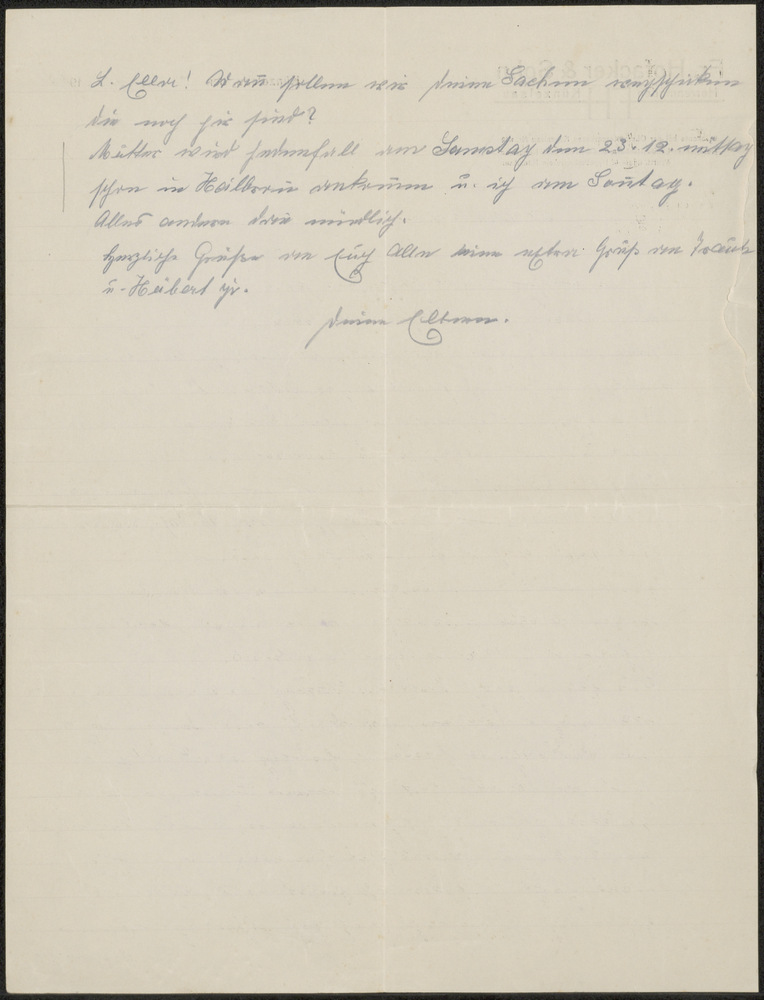 L. Ella! Wann sollen wir deine Sachen wegschicken
die noch hir sind?
Mutter wird jedenfall am Samstag den 23.12. mittag
schon in Heilbron ankommen u. ich am Sontag.
Alles andere dan mündlich.
Herzliche Grüße an Euch Alle Gruß an
u. Heibert jr.
Deine Eltern.